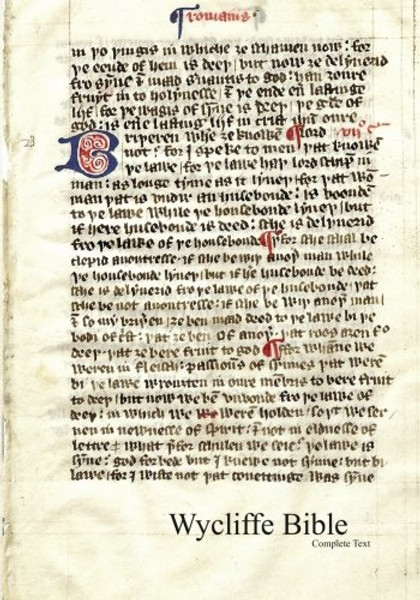 ¶ romanis
in þo þingis in whiche ȝe schamen now: for
þe eende of hem is deeþ, but now ȝe delyuerid
fro synne & maad s'uantis to god: han ȝoure
fruyt in to holynesse, & þe ende eu'lastinge
lijf: for þe wagis of synne is deeþ, þe g'ce of
god: is eu'lastinge lijf in crist ihu oure
Briþeren wheþ' ȝe knowen ¶ lord vii c
not: for I speke to men þat knowen
þe lawe for þe lawe haþ lordschip in
man: as longe tyme as it lyueþ: for þat wo-
man þat is vndir an husebonde: is boonden
to þe lawe while þe housebonde lyueþ, but
if here housebonde is deed: sche is delyuerid
fro þe lawe of þe housebonde ¶ þ'for sche schal be
clepid auoutresse: if sche be wiþ anoþ' man while
þe housebonde lyueþ: but if hir housebonde be deed:
sche is delyuerid fro þe lawe of þe husebonde: þat
sche be not auoutresse: if sche be wiþ anoþ' man
& so my briþ'en ȝe ben maad deed to þe lawe bi þe
bodi of c'st: þat ȝe ben of anoþ': þat roos aȝen fro
deeþ: þat ȝe bere fruit to god ¶ for whanne we
weren in fleisch: passiouns of synnes þat weren
bi þe lawe wrouȝten in oure membris to bere fruit
to deeþ, but now we ben vnbonde fro þe lawe of
deeþ: in which we weren holden: so þat we ser-
uen in newnesse of spirit: & not in eldnesse of
lettre & what þ'for schulen we seie: þe lawe is
synne: god forbede but I knewe not synne: but bi
lawe, for I wiste not þat coueitinge was synne
Wycliffe Bible
Complete Text